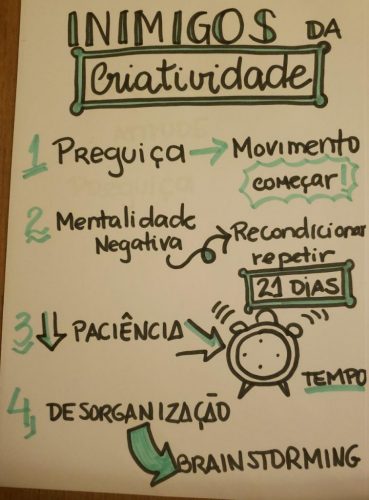 INIMIGOS DA
Criatividade
1 Preguiça → Movimento
COMEÇAR!
2 Mentalidade Negativa → Recondicionar
repetir
21 DIAS
3 ↓↓ PACIÊNCIA →
TEMPO
4, DESORGANIZAÇÃO
BRAINSTORMING